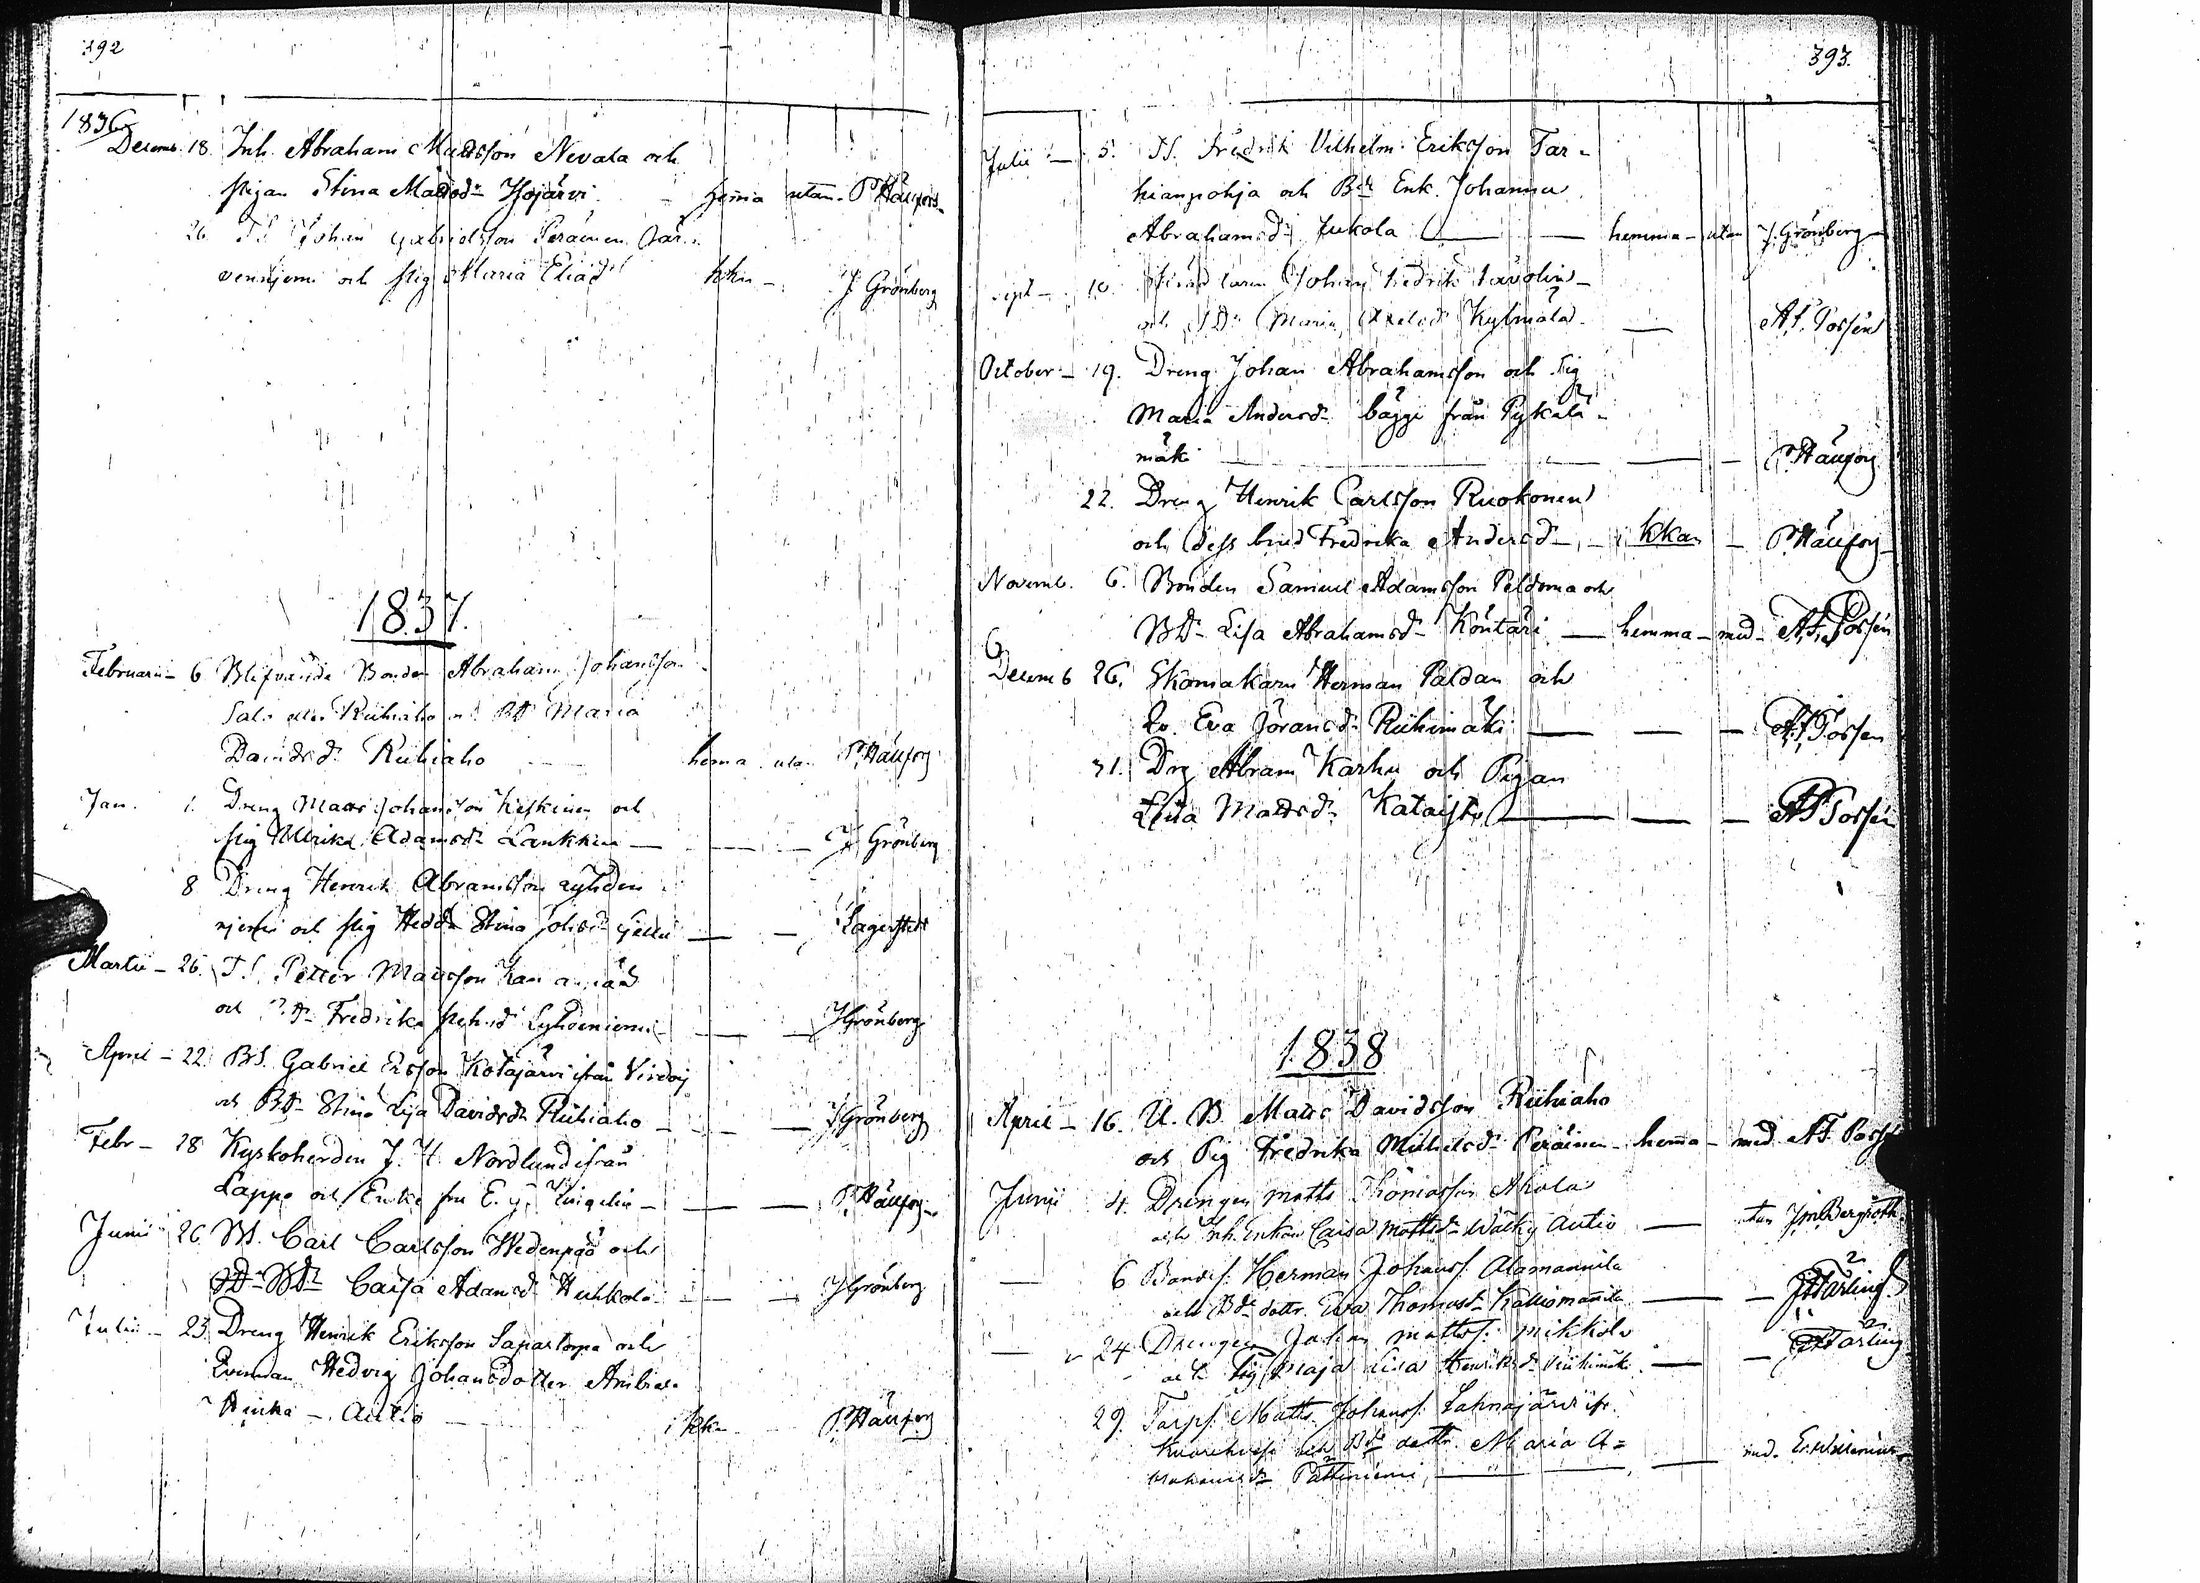 392
1836
Decemb. 18. Inh. Abraham Mattsson Nevala och
pigan Stina Mattsdr Isojärvi hemma utan P. Häufors
26. TS Johan Gabrielsson Peräinen Jär-
venniemi och pig Maria Eliad kkn - J Grönberg
1837.
Februarii - 6 Blifvande Bonden Abraham Johansson
Salo eller Riihiaho BDr Maria
Davidsdr Riihiaho hema utan P. Häufors
Jan. 1. Dreng Matts Johansson Keskinen och
pig Ulrika Adamsdr Lankkinen — J Grönberg
8 Dreng Henrik Abramsson Lyhden
njemi och pig Hedda Stina Johsdr — Lagerstedt
Martii - 26. TS. Petter Mattsson
och Dr Fredrika Lyhdeniemi — J Grönberg
April - 22. BS. Gabriel Ersson Kotajärvi ifrån Virdois
och BDr Stina Lisa Davidsdr Riihiaho — J Grönberg
Febr - 28 Kyrkoherden J. H. Nordlund ifrån
Lappo och Enke fru E. — P. Häufors
Junii 26. BS. Carl Carlsson Wedenpää och
BDr Caisa Adamsdr Huhkola — J Grönberg
Julii - 23. Dreng Henrik Eriksson Sapastorpa och
Qvinnan Hedvig Johansdotter
- Autio i kka P. Häufors
393.
Julii — 5. TS. Fredrik Vilhelm Eriksson Tar-
hianpohja och Bdr Enk. Johanna
Abrahamsdr Jukola — hemma - utan J. Grönberg
Sept - 10. Johan Fredrik
och Dr Maria Axelsdr Kylmälä — A.F. Tossén
October - 19. Dreng Johan Abrahamsson och Pig
Maria Andersdr bägge från Pykälä-
mäki — P. Häufors
22. Dreng Henrik Carlsson Ruokonen
och dess brud Fredrika Andersdr - i kkan - P. Häufors
Novemb. 6. Bonden Samuel Adamsson Peldoma och
BDr Lisa Abrahamsdr Kontari — hemma - med - A.F. Tossén
Decemb 26. Skomakarn Herman Paldan och
Qv. Eva Göransdr Riihimäki — A.F. Tossén
31. Drg Abram Karhu och Pigan
Lena Mattsdr Kataisto — A.F. Tossén
1838
April - 16. U. B Matts Davidsson Riihiaho
och Pig Fredrika Michelsdr Peräinen - hemma - med A.F. Tossén
Junii 4. Drengen Matts Thomasson Ahola
och Inh. Enkan Caisa Mattsdr Wälky Autio — utan J M Bergroth
— 6 Bondes. Herman Johanss. Alamannila
och Bde dottr. Eva Thomasdr Kalliomannila — J Färling
— 24 Drengen Johan Mattss. Mikkola
och Pig Maja Lisa Henriksdr Riihimäki — Färling
29. Torps. Matts Johanss. Lahnajärvi ifr.
och Bde dottr. Maria A=
brahamsdr Pättiniemi — med. Er. Wilenius